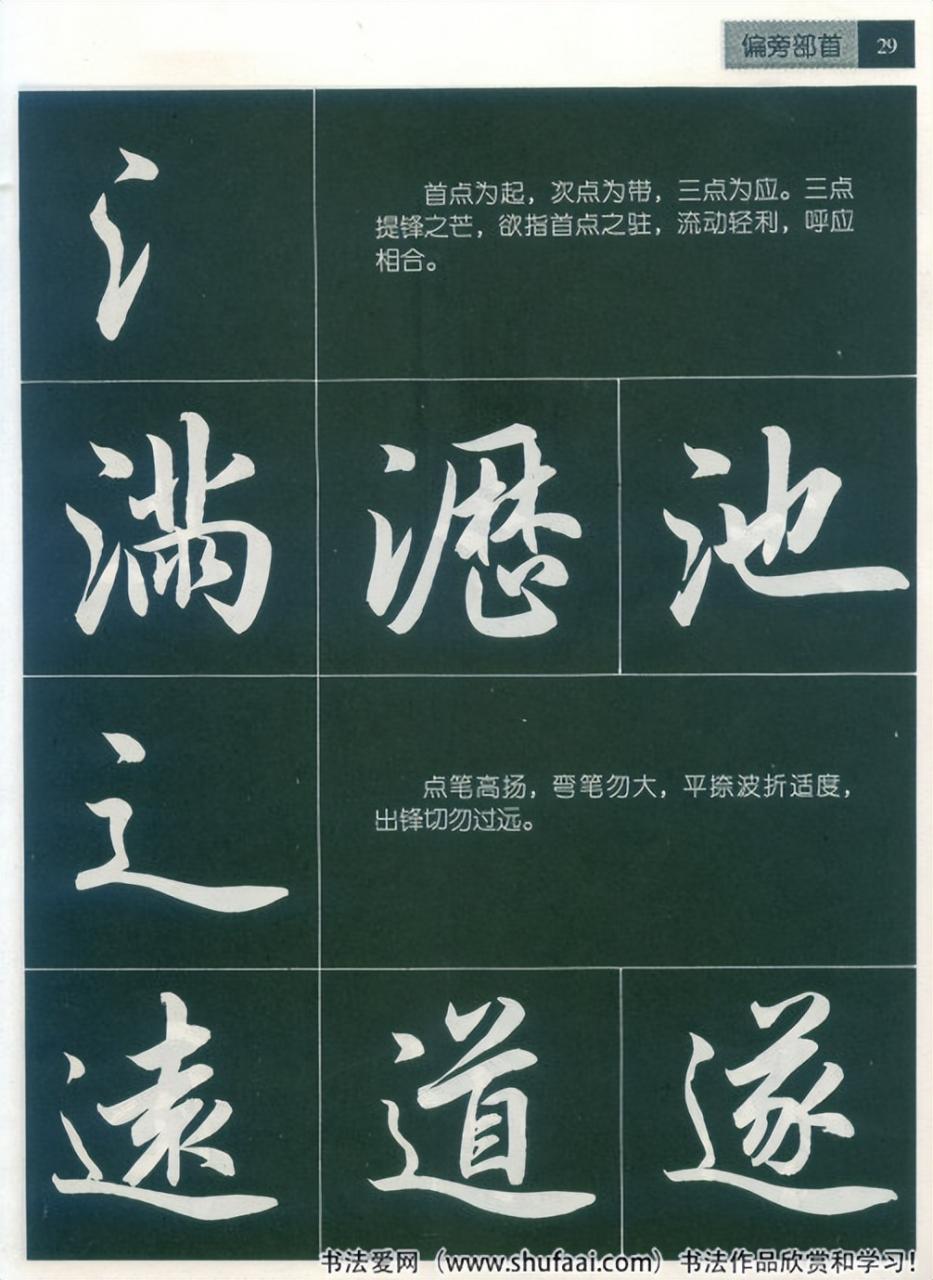 偏旁部首 29
氵
首点为起，次点为带，三点为应。三点
提锋之芒，欲指首点之驻，流动轻利，呼应
相合。
滿 池
辶
点笔高扬，弯笔勿大，平捺波折适度，
出锋切勿过远。
遠 道 遂
书法爱网（www.shufaai.com）书法作品欣赏和学习！